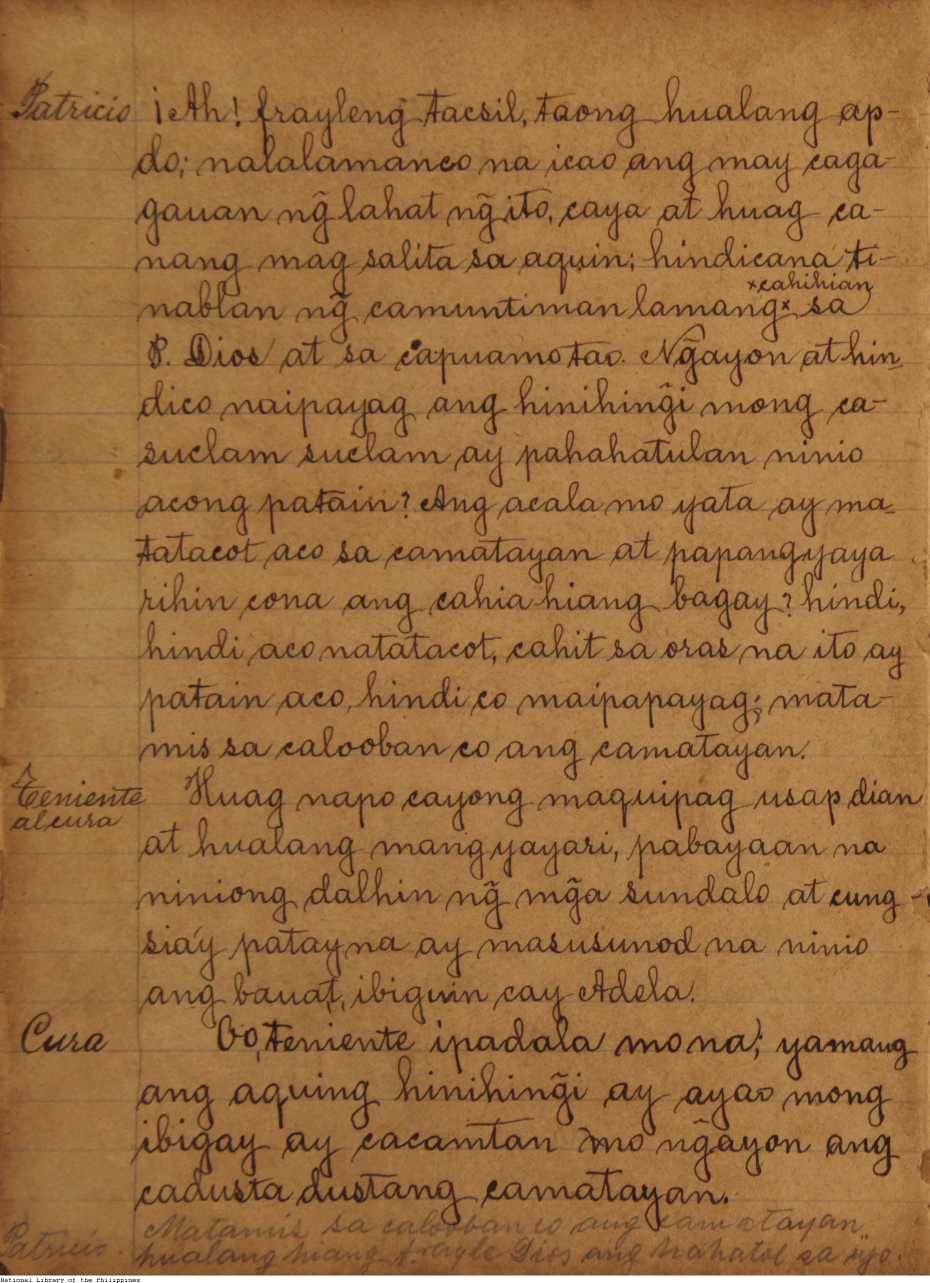 Patricio ¡Ah! frayleng tacsil, taong hualang ap-
do; nalalamanco na icao ang may caga-
gauan ng̃ lahat ng̃ ito, caya at huag ca-
nang mag salita sa aquin; hindicana ti-
×cahihian
nablan ng̃ camuntiman lamang× sa
P. Dios at sa capuamo tao. Ng̃ayon at hin-
dico naipayag ang hinihing̃i mong ca-
suclam suclam ay pahahatulan ninio
acong patain? Ang acala mo yata ay ma-
tatacot aco sa camatayan at papangyaya
rihin cona ang cahia hiang bagay? hindi,
hindi aco natatacot, cahit sa oras na ito ay
patain aco, hindi co maipapayag; mata-
mis sa calooban co ang camatayan.
Teniente Huag napo cayong maquipag usap dian
al cura
at hualang mangyayari, pabayaan na
niniong dalhin ng̃ mg̃a sundalo at cung
sia'y patay na ay masusunod na ninio
ang bauat, ibiguin cay Adela.
Cura Oo, teniente ipadala mo na; yamang
ang aquing hinihing̃i ay ayao mong
ibigay ay cacamtan mo ng̃ayon ang
cadusta dustang camatayan.
Patricio. Matamis sa calooban co ang camatayan
hualang huang Dios ang hahatol sa iyo.
National Library of the Philippines